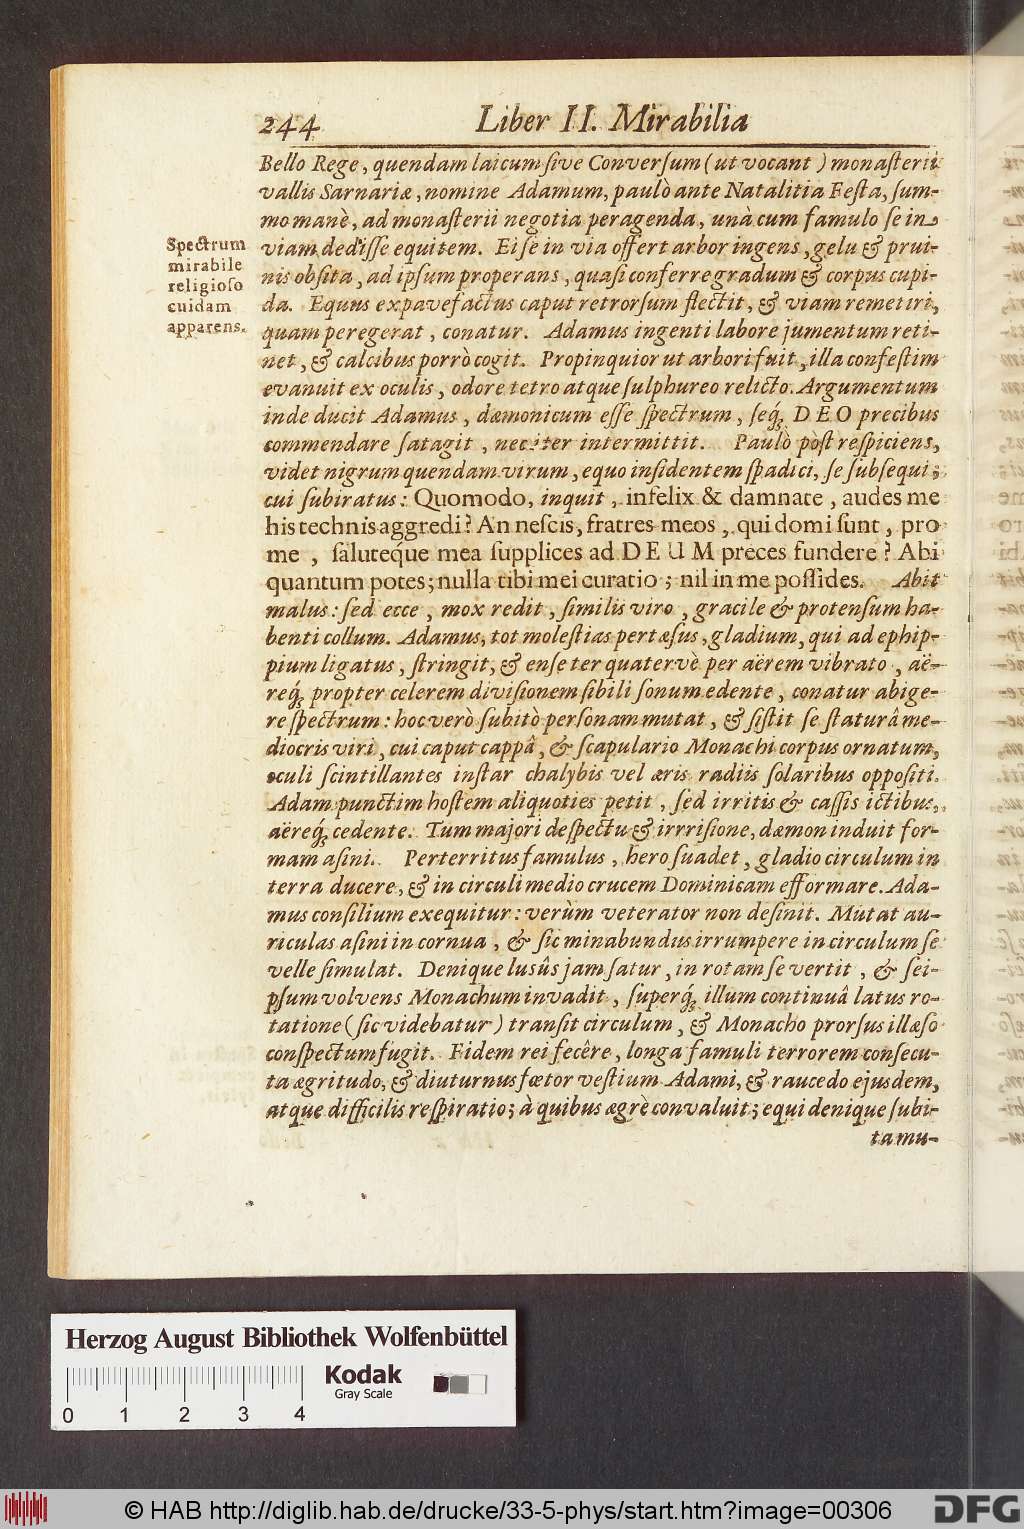 244 Liber II. Mirabilia
Bello Rege, quendam laicum ſive Converſum (ut vocant) monaſterii
vallis Sarnariæ, nomine Adamum, paulò ante Natalitia Feſta, ſum-
mo manè, ad monaſterii negotia peragenda, unà cum famulo ſe in
viam dediſſe equitem. Ei ſe in via offert arbor ingens, gelu & prui-
nis obſita, ad ipſum properans, quaſi conferre gradum & corpus cupi-
da. Equus expavefactus caput retrorſum flectit, & viam remetiri,
quam peregerat, conatur. Adamus ingenti labore jumentum reti-
net, & calcibus porrò cogit. Propinquior ut arbori fuit, illa confeſtim
evanuit ex oculis, odore tetro atque ſulphureo relicto. Argumentum
inde ducit Adamus, dæmonicum eſſe ſpectrum, ſeq́; DEO precibus
commendare ſatagit, nec iter intermittit. Paulò pòſt reſpiciens,
videt nigrum quendam virum, equo inſidentem ſpadici, ſe ſubſequi;
cui ſubiratus: Quomodo, inquit, infelix & damnate, audes me
his technis aggredi? An neſcis, fratres meos, qui domi ſunt, pro
me, ſaluteq́ue mea ſupplices ad DEUM preces fundere? Abi
quantum potes; nulla tibi mei curatio; nil in me poſſides. Abit
malus: ſed ecce, mox redit, ſimilis viro, gracile & protenſum ha-
benti collum. Adamus, tot moleſtias pertæſus, gladium, qui ad ephip-
pium ligatus, ſtringit, & enſe ter quatervè per aërem vibrato, aë-
req́; propter celerem diviſionem ſibili ſonum edente, conatur abige-
re ſpectrum: hoc verò ſubitò perſonam mutat, & ſiſtit ſe ſtaturâ me-
diocris viri, cui caput cappâ, & ſcapulario Monachi corpus ornatum,
oculi ſcintillantes inſtar chalybis vel æris radiis ſolaribus oppoſiti.
Adam punctim hoſtem aliquoties petit, ſed irritis & caſſis ictibus,
aëreq́; cedente. Tum majori deſpectu & irrriſione, dæmon induit for-
mam aſini. Perterritus famulus, hero ſuadet, gladio circulum in
terra ducere, & in circuli medio crucem Dominicam efformare. Ada-
mus conſilium exequitur: verùm veterator non deſinit. Mutat au-
riculas aſini in cornua, & ſic minabundus irrumpere in circulum ſe
velle ſimulat. Denique luſûs jam ſatur, in rotam ſe vertit, & ſei-
pſum volvens Monachum invadit, ſuperq́; illum continuâ latus ro-
tatione (ſic videbatur) tranſit circulum, & Monacho prorſus illæſo
conſpectum fugit. Fidem rei fecêre, longa famuli terrorem conſecu-
ta ægritudo, & diuturnus fœtor veſtium Adami, & raucedo ejusdem,
atque difficilis reſpiratio; à quibus ægrè convaluit; equi denique ſubi-
ta mu-
Spectrum
mirabile
religioſo
cuidam
apparens.
Herzog August Bibliothek Wolfenbüttel
Kodak
Gray Scale
0 1 2 3 4
© HAB http://diglib.hab.de/drucke/33-5-phys/start.htm?image=00306
DFG